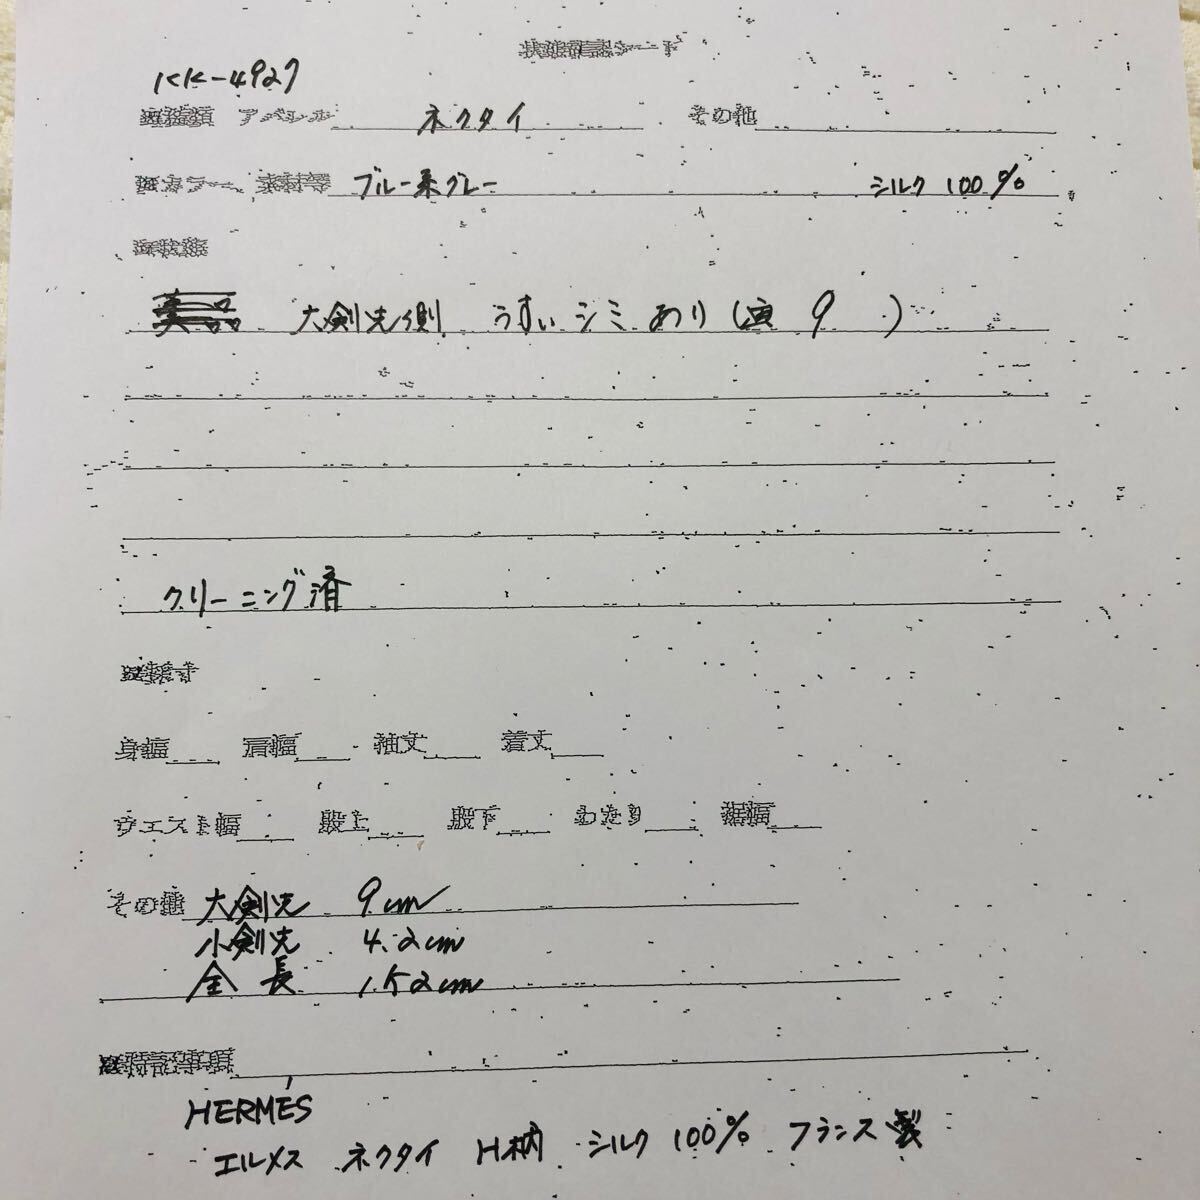 状態確認シート
KK-4927
アパレル ネクタイ その他
カラー、素材等 ブルー系グレー シルク 100%
大剣先側 うすいシミあり( 9 )
クリーニング済
身幅 肩幅 袖丈 着丈
ウエスト幅 股上 股下 わたり 裾幅
その他 大剣先 9cm
小剣先 4.2cm
全長 152cm
特記事項
HERMÉS
エルメス ネクタイ H柄 シルク 100% フランス製